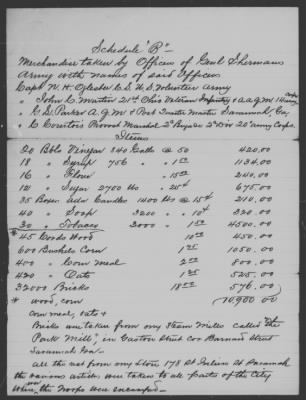 Schedule "B"
Merchandise taken by Officers of Genl Shermans
Army with names of said Officers
Capt W. H. Oglesbe C.S. U.S. Volunteer Army
" John C. Martin 21st Ohio Veteran Infantry & A.A.G.M. 1 corps
" G. S. Parker A.G.M & Post Quarter Master Savannah, Ga,
" C Provost Marshal 2nd Brigade 2nd Div 20th army Corps.
Items
20 Bbls Vinegar 840 Galls @ 50 420.00
18 " Syrup 756 " " 1 50 1134.00
16 " Flour " 15 00 240.00
12 " Sugar 2700 lbs " 25¢ 675.00
35 Boxes Candles 1400 lbs @ 15¢ 210.00
40 " Soap 3200 " " 10¢ 320.00
30 " Tobacco 3000 " " 1 50 4500.00
* 45 Cords Wood 10 00 450.00
600 Bushels Corn 1 75 1050.00
400 " Corn Meal " 2 00 800.00
420 " Oats " 1 25 525.00
32000 Bricks 18 00 576.00
* wood, corn 10,900 00
Corn meal, oats &
Bricks were taken from my Steam Mills called "The
Park Mill", in Gaston Street cor Barnard Street
Savannah Ga.
all the rest from my Store 178 St Julien St Savannah
the various articles were taken to all parts of the City
where the Troops were encamped.